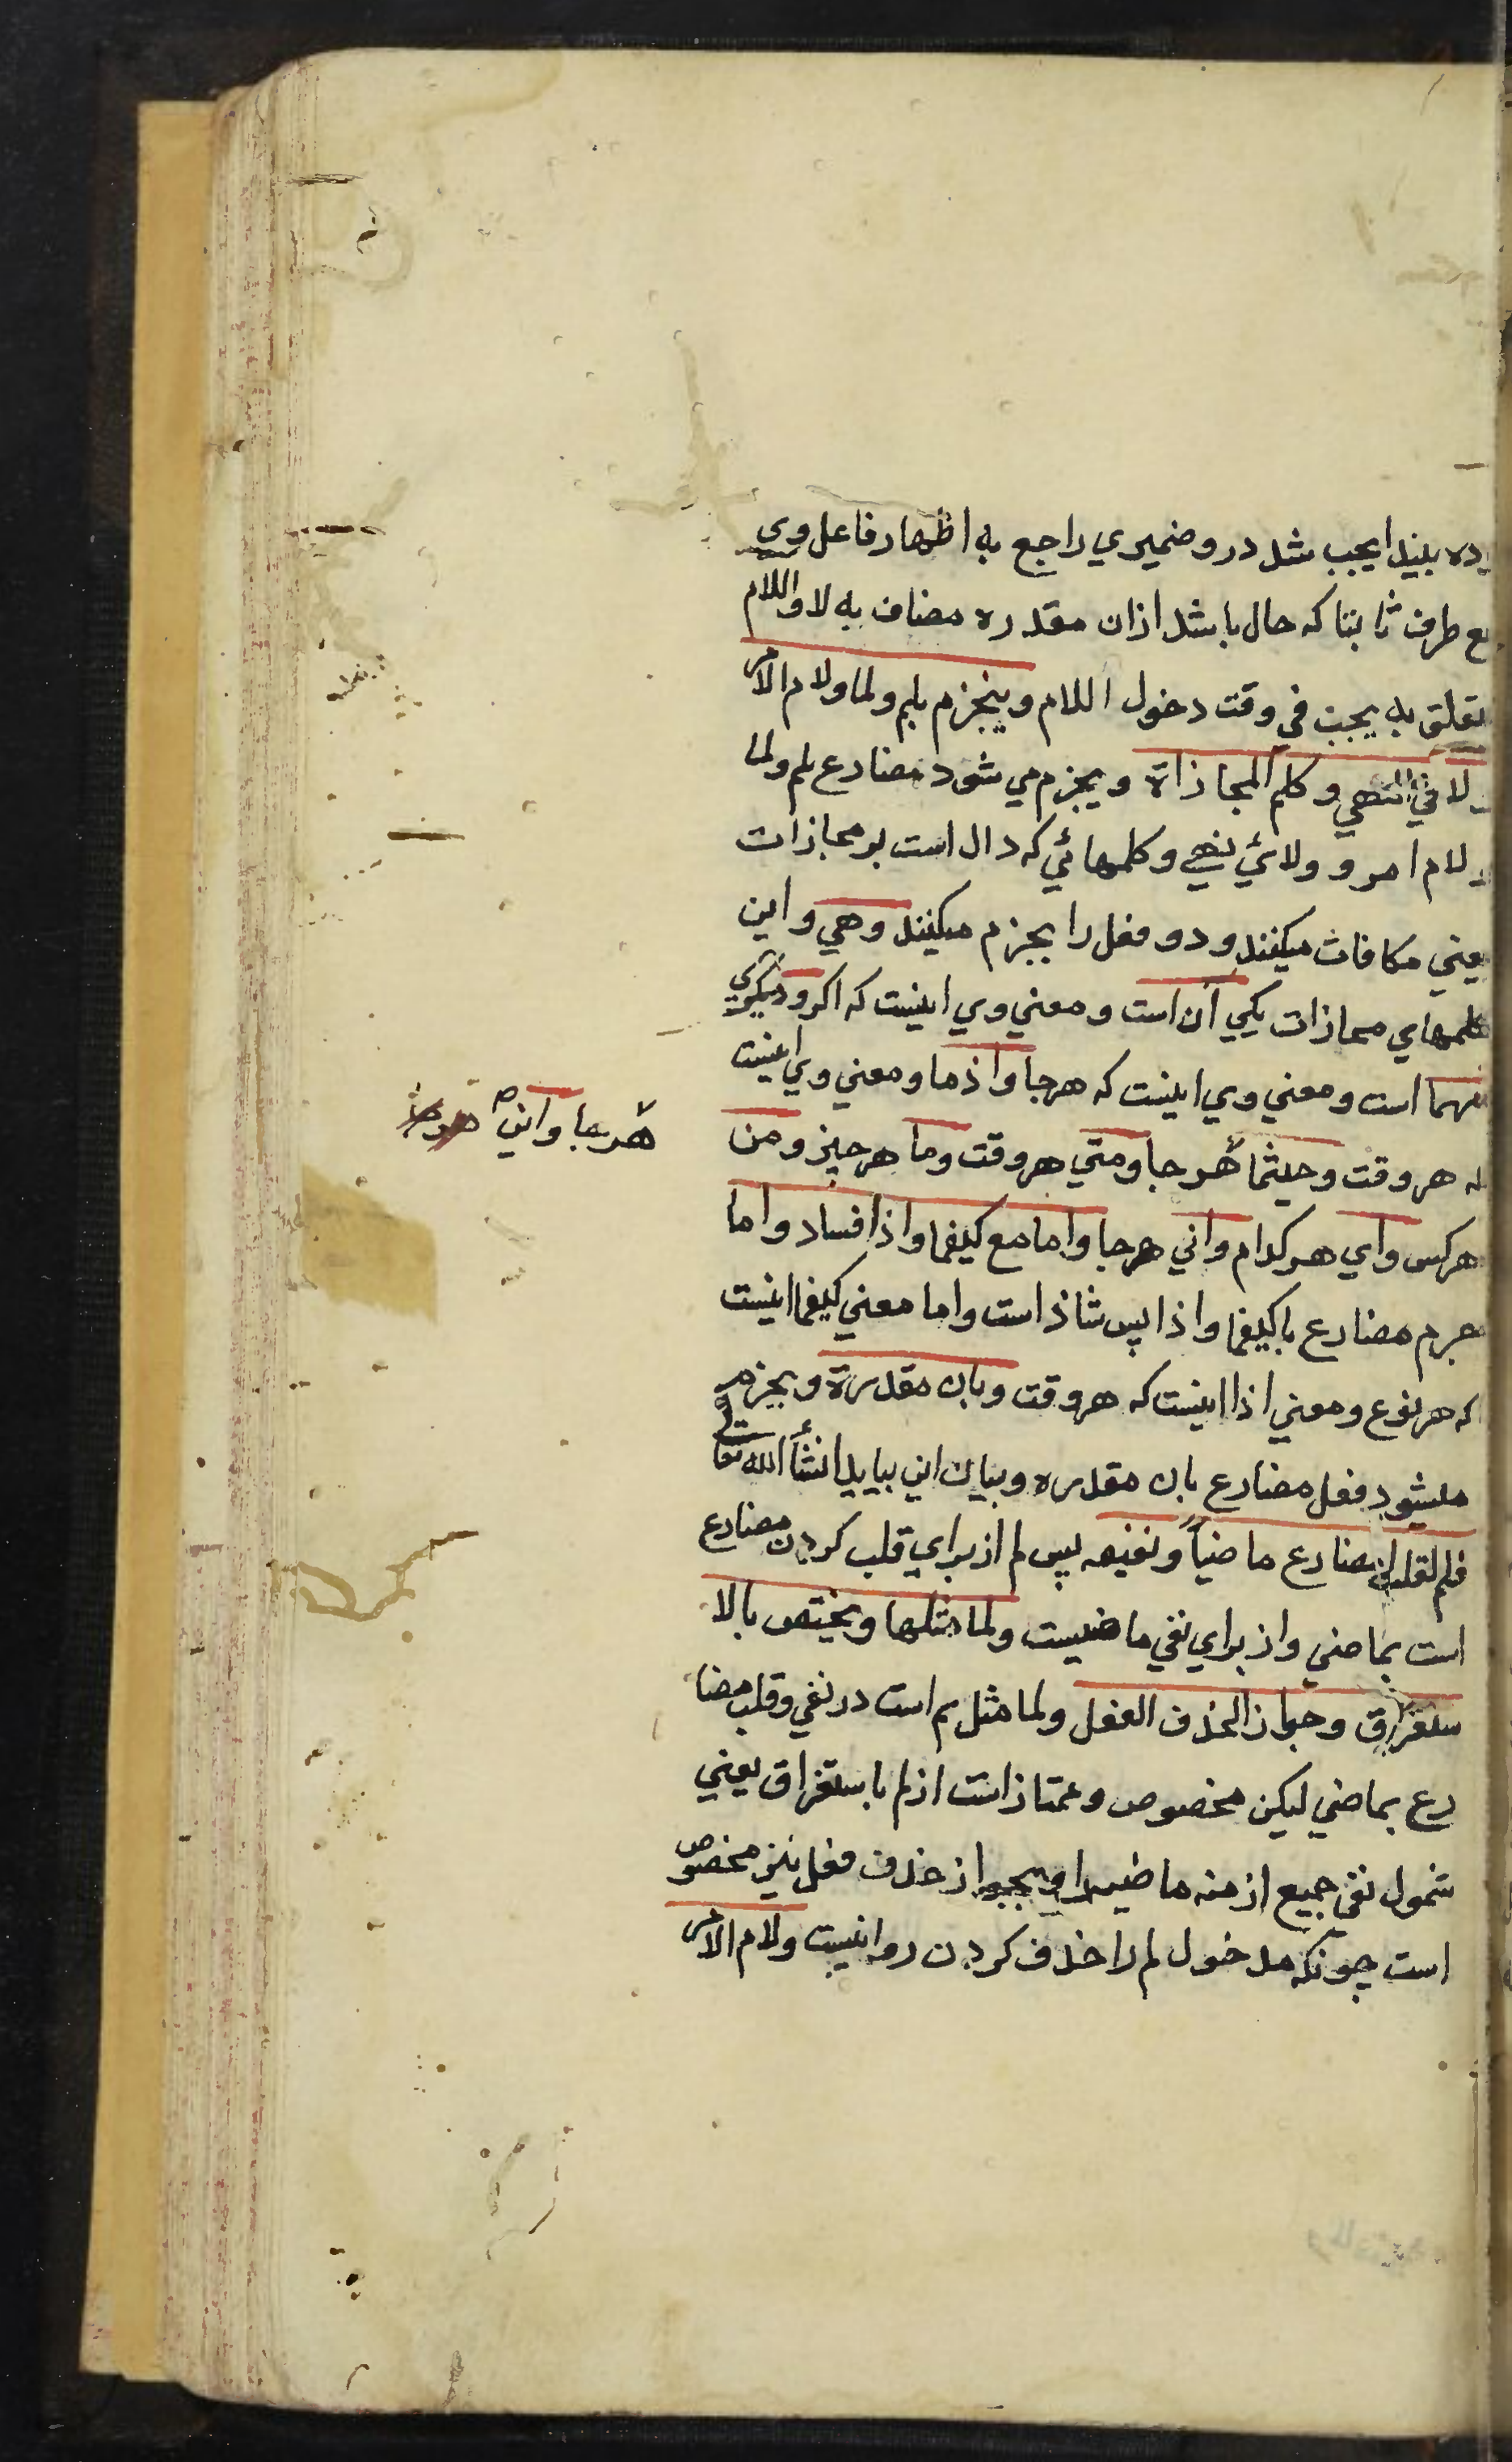 ده بیند ایجب شد درو ضمیری راجع به اظهار فاعل وی
ع طرف ثابتا که حال باشد از ان مقدره مضاف به لا واللام
تعلق به یجب في وقت دخول اللام وینجزم بلم ولما ولام الامر
لا في النهي وكلم المجازاة ویجزم می شود مضارع بلم ولما
لام امر و ولائي نهي وکلمهائي که دال است بر مجازات
یعني مکافات میکنند و دو فعل را بجزم میکنند وهي واین
کلمهاي مجازات یکي ان است ومعني وي اینست که اکر ودیکري
مهما است ومعني وي اینست که هرجا واذما ومعني وي اینست
که هر وقت وحیثما هرجا ومتي هر وقت وما هر چیز ومن
هرکس واي هرکدام واني هرجا واما مع کیفما واذا فشاد واما
جزم مضارع با کیفما واذا پس شاذ است واما معني کیفما اینست
که هر نوع ومعني اذا اینست که هر وقت وبان مقدرة وبجزم
میشود فعل مضارع بان مقدره وبیان این بیاید انشأ الله تعا
فلم لقلب المضارع ماضیاً ونفیه پس لم از براي قلب کردن مضارع
است بماضي واز براي نفي ماضیست ولما مثلها ویختص بالا
ستغراق وجواز الحذف الفعل ولما مثل لم است در نفي وقلب مضا
رع بماضي لیکن مخصوص وممتاز است از لم باستغراق یعني
شمول نفي جمیع ازمنه ماضیه را وبجواز حذف فعل نیز مخصوص
است چونکه مدخول لم را حذف کردن روا نیست ولام الامر
هرجا واین